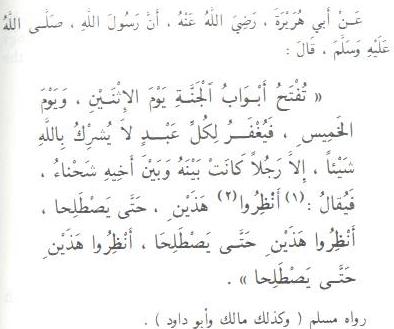 عَنْ أَبِي هُرَيْرَةَ ، رَضِيَ اللهُ عَنْهُ ، أَنَّ رَسُولَ اللهِ ، صَلَّى اللهُ
عَلَيْهِ وَسَلَّمَ ، قَالَ :
« تُفْتَحُ أَبْوَابُ الْجَنَّةِ يَوْمَ الإِثْنَيْنِ ، وَيَوْمَ
الخَمِيسِ ، فَيُغْفَرُ لِكُلِّ عَبْدٍ لاَ يُشْرِكُ بِاللَّهِ
شَيْئاً ، إِلاَّ رَجُلاً كَانَتْ بَيْنَهُ وَبَيْنَ أَخِيهِ شَحْنَاءُ ،
فَيُقالُ : (١) أَنْظِرُوا (٢) هَذَيْنِ ، حَتَّى يَصْطَلِحا ،
أَنْظِرُوا هَذَيْنِ حَتَّى يَصْطَلِحَا ، أَنْظِرُوا هَذَيْنِ
حَتَّى يَصْطَلِحا » .
رواه مسلم ( وكذلك مالك وأبو داود ) .